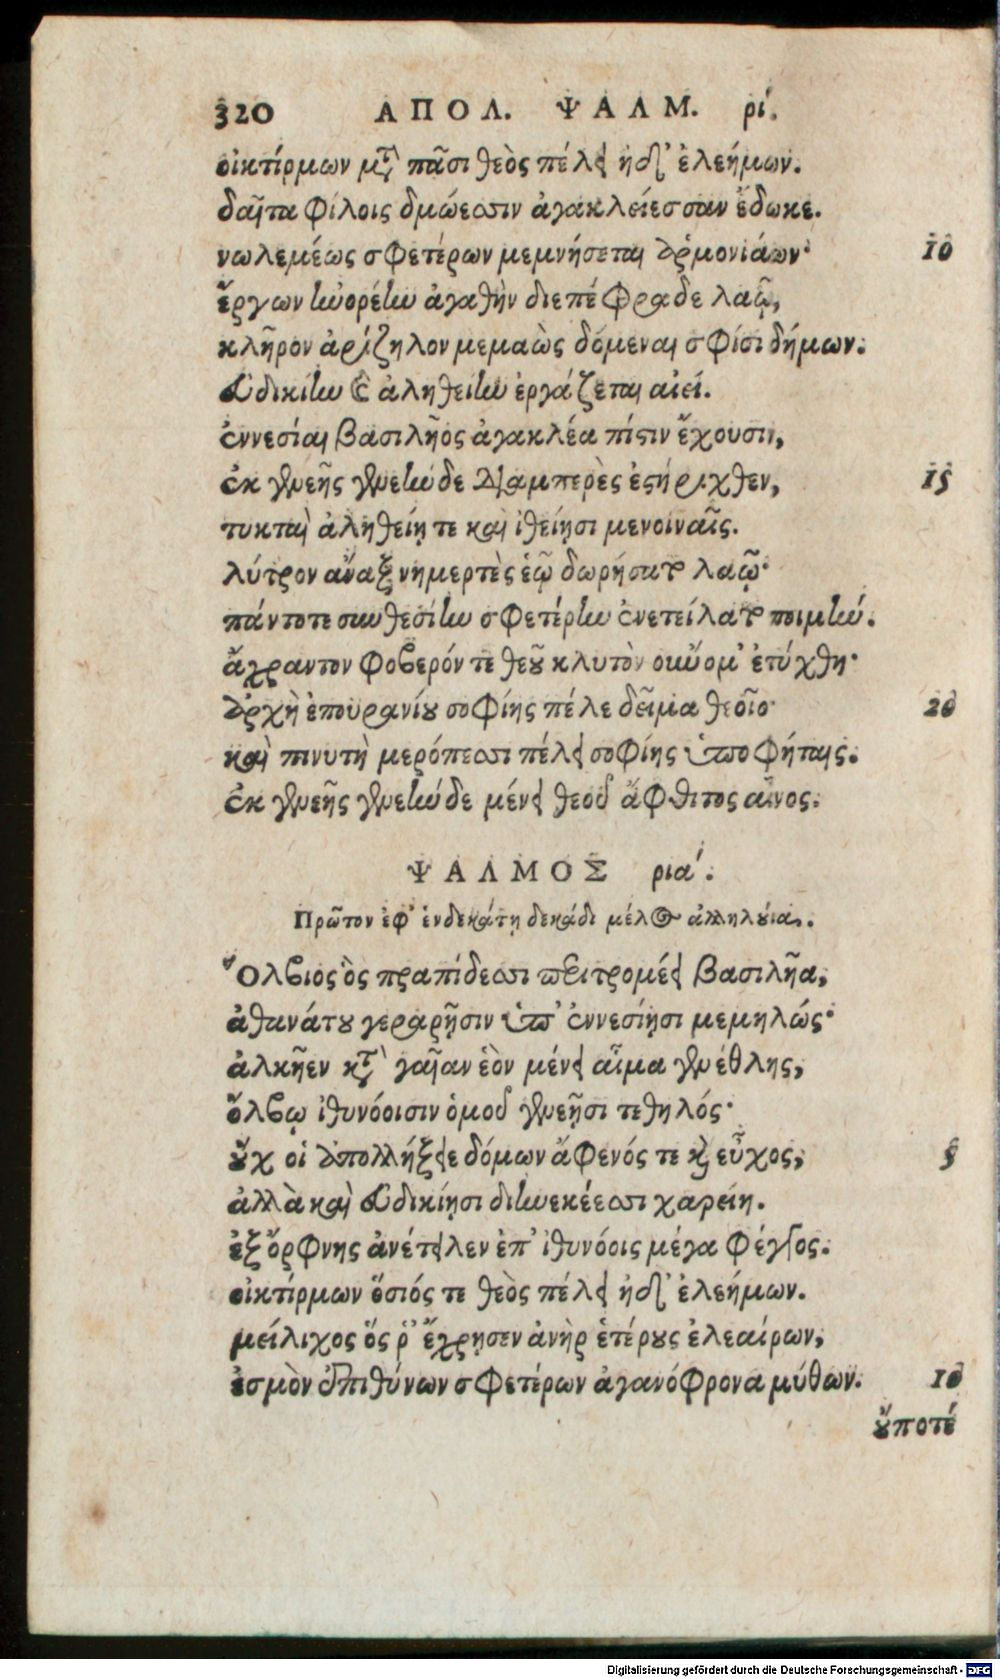 320 ΑΠΟΛ. ΨΑΛΜ. ρί.
οἰκτίρμων μτ̀ πᾶσι θεὸς πέλει ἠδ' ἐλεήμων.
δαῖτα φίλοις δμώεσσιν ἀγακλείεσσαν ἔδωκε.
νωλεμέως σφετέρων μεμνήσεται ἁρμονιάων· 10
ἔργων ἠνορέην ἀγαθὴν διεπέφραδε λαῷ,
κλῆρον ἀρίζηλον μεμαὼς δόμεναι σφίσι δήμων.
εὐδικίην καὶ ἀληθείην ἐργάζεται αἰεί.
ἐννεσίαι βασιλῆος ἀγακλέα πίστιν ἔχουσιν,
ἐκ γενεῆς γενεήν δε διαμπερὲς ἐστήριχθεν, 15
τυκταὶ ἀληθείῃ τε καὶ ἰθείῃσι μενοιναῖς.
λύτρον ἄναξ νημερτὲς ἑῷ δωρήσατο λαῷ·
πάντοτε συνθεσίην σφετέρην ἐνετείλατο ποιμήν.
ἄχραντον φοβερόν τε θεοῦ κλυτὸν οὔνομ' ἐτύχθη·
ἀρχὴ ἐπουρανίου σοφίης πέλε δεῖμα θεοῖο· 20
καὶ πινυτὴ μερόπεσσι πέλει σοφίης ὑποφήταις.
ἐκ γενεῆς γενεήν δε μένει θεοῦ ἄφθιτος αἶνος.
ΨΑΛΜΟΣ ρια΄.
Πρῶτον ἐφ' ἑνδεκάτῃ δεκάδι μέλος ἀλληλούια.
Ὄλβιος ὃς πραπίδεσσι περιτρομέει βασιλῆα,
ἀθανάτου γεραρῇσιν ὑπ' ἐννεσίῃσι μεμηλώς·
ἀλκῆεν κτ̀ γαῖαν ἑὸν μένει αἷμα γενέθλης,
ὄλβῳ ἰθυνόοισιν ὁμοῦ γενεῇσι τεθηλός·
οὔχ οἱ ἀπολλήξειε δόμων ἄφενός τε καὶ εὖχος, 5
ἀλλὰ καὶ εὐδικίῃσι διηνεκέεσσι χαρείη.
ἐξ ὄρφνης ἀνέτειλεν ἐπ' ἰθυνόοις μέγα φέγγος.
οἰκτίρμων ὅσιός τε θεὸς πέλει ἠδ' ἐλεήμων.
μείλιχος ὅς ῥ' ἔχρησεν ἀνὴρ ἑτέρους ἐλεαίρων,
ἑσμὸν ἐπιθύνων σφετέρων ἀγανόφρονα μύθων. 10
οὔποτέ
Digitalisierung gefördert durch die Deutsche Forschungsgemeinschaft - DFG